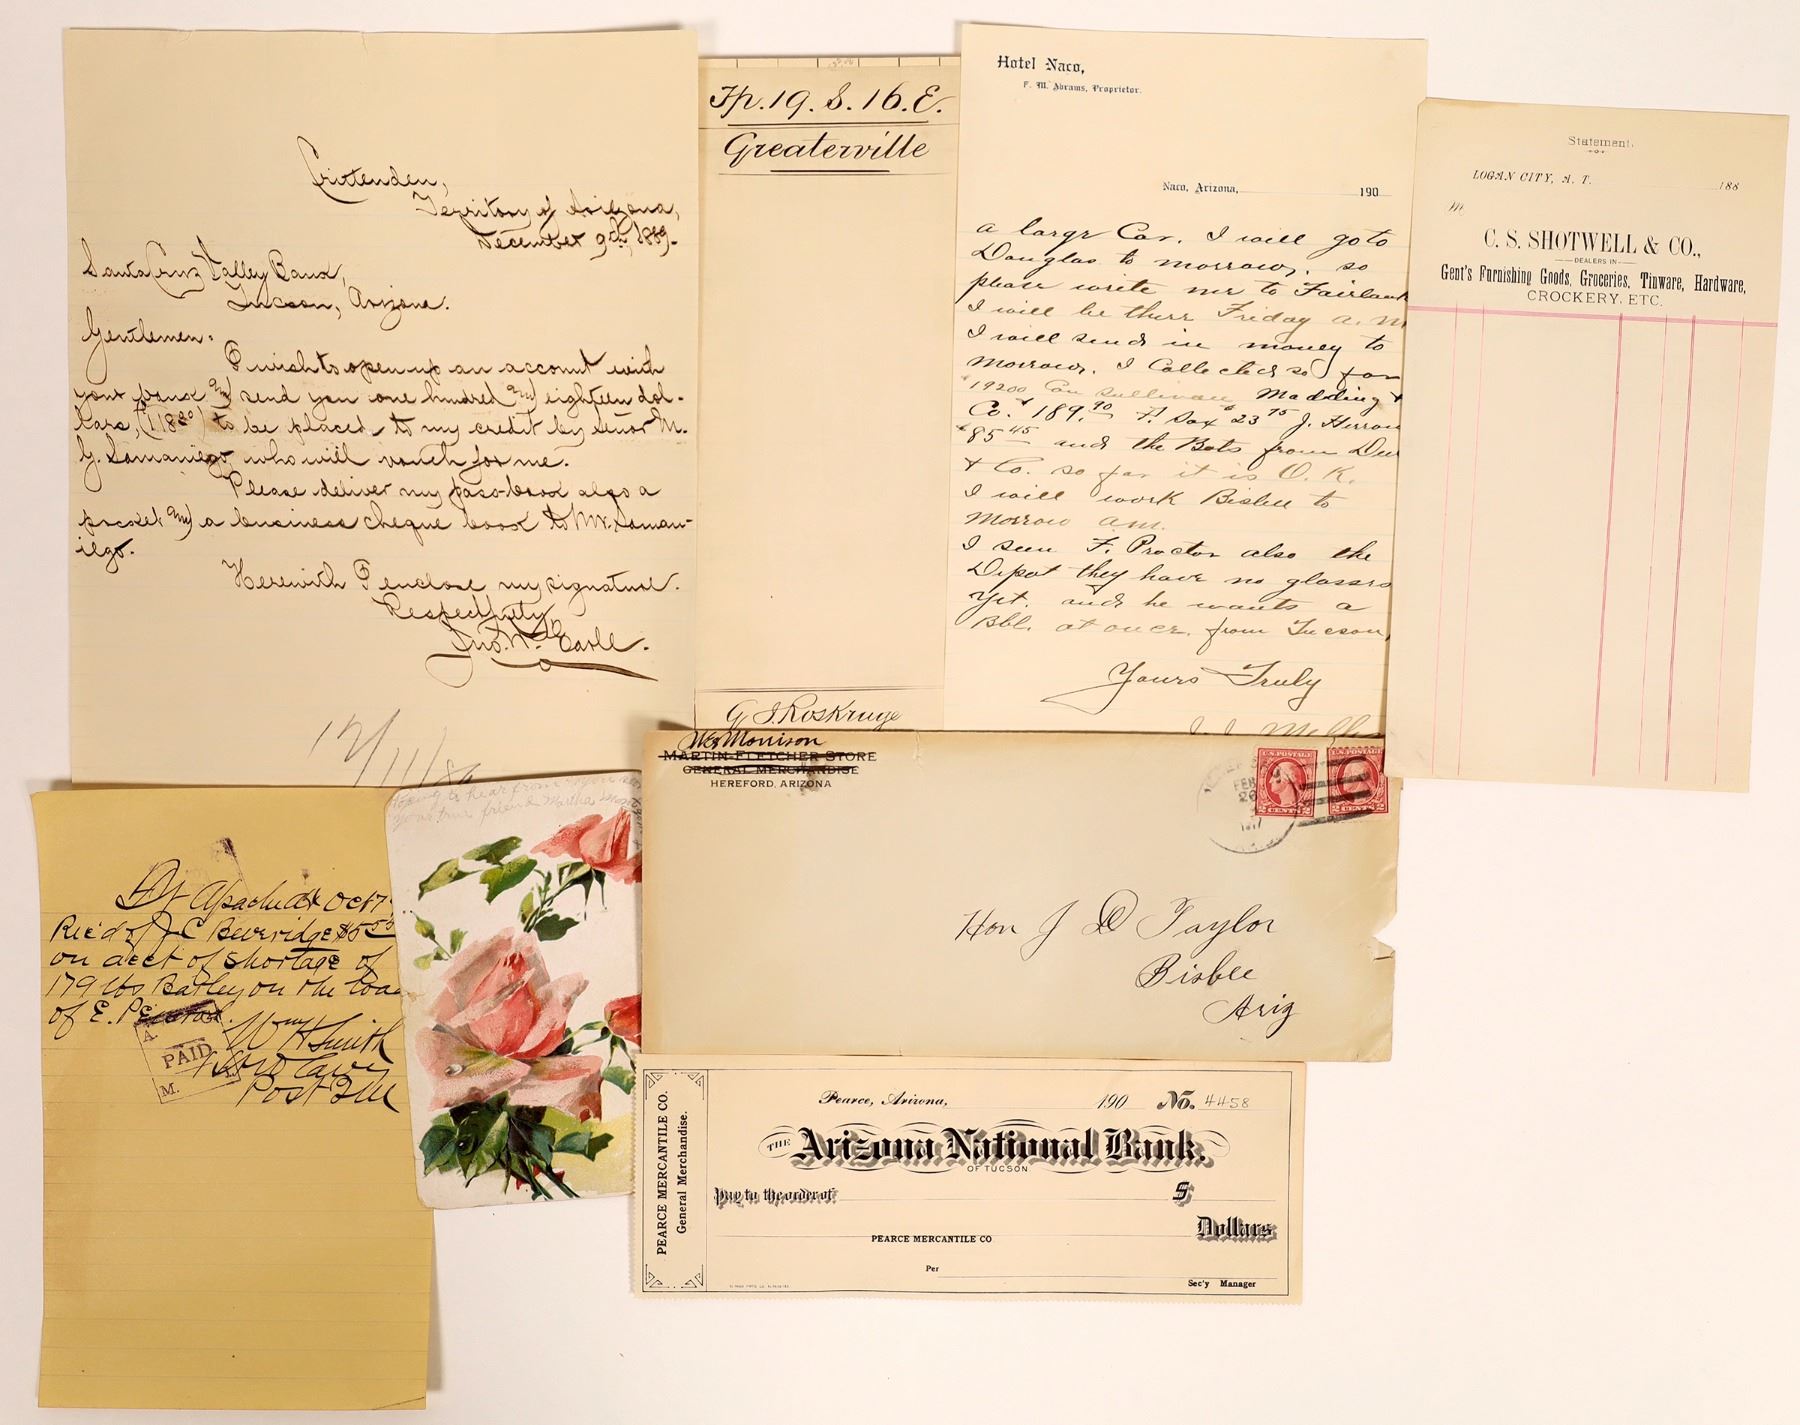 Crittenden,
Territory of Arizona,
December 9th, 1889.
Santa Cruz Valley Bank,
Tucson, Arizona.
Gentlemen:
I wish to open up an account with
your bank and send you one hundred and eighteen dol-
lars, to be placed to my credit by señor M.
G. Samaniego who will vouch for me.
Please deliver my pass-book also a
pocket and a business cheque book to Mr. Saman-
iego.
Herewith I enclose my signature.
Respectfully
Jno. W. Earle.
12/11/89
Tp. 19. S. 16. E.
Greaterville
G. J. Roskruge
Hotel Naco,
F. M. Abrams, Proprietor.
Naco, Arizona, 190
a large Car. I will go to
Douglas to morrow, so
please write me to Fairbank
I will be there Friday a. m
I will send in money to
morrow. I Collected so far
192.00 Con Sullivan, Madding &
Co. $189.90 F. Sax $23.75 J. Herron
$85.45 and the Bots from
& Co. so far it is O. K.
I will work Bisbee to
morrow am.
I seen F. Proctor also the
Depot they have no glasses
yet. and he wants a
Bbl. at once from Tucson,
Yours Truly
Statement.
LOGAN CITY, A. T. 188
M
C. S. SHOTWELL & CO.,
DEALERS IN
Gent's Furnishing Goods, Groceries, Tinware, Hardware,
CROCKERY, ETC.
Wm Morrison
MARTIN-FLETCHER STORE
GENERAL MERCHANDISE
HEREFORD, ARIZONA
FEB
26
1917
U.S. POSTAGE
2 CENTS 2
Hon J D Taylor
Bisbee
Ariz
hoping to hear from you soon
your true friend Martha
Ft Apache Oct 7
Rec'd of J C Beveridge $5.55
on acct of shortage of
179 lbs Barley on the load
of E.
Wm H Smith
Post QM
A.
PAID
M.
PEARCE MERCANTILE CO.
General Merchandise.
Pearce, Arizona, 190 No. 4458
THE Arizona National Bank.
OF TUCSON
Pay to the order of $
Dollars
PEARCE MERCANTILE CO
Per
Sec'y Manager